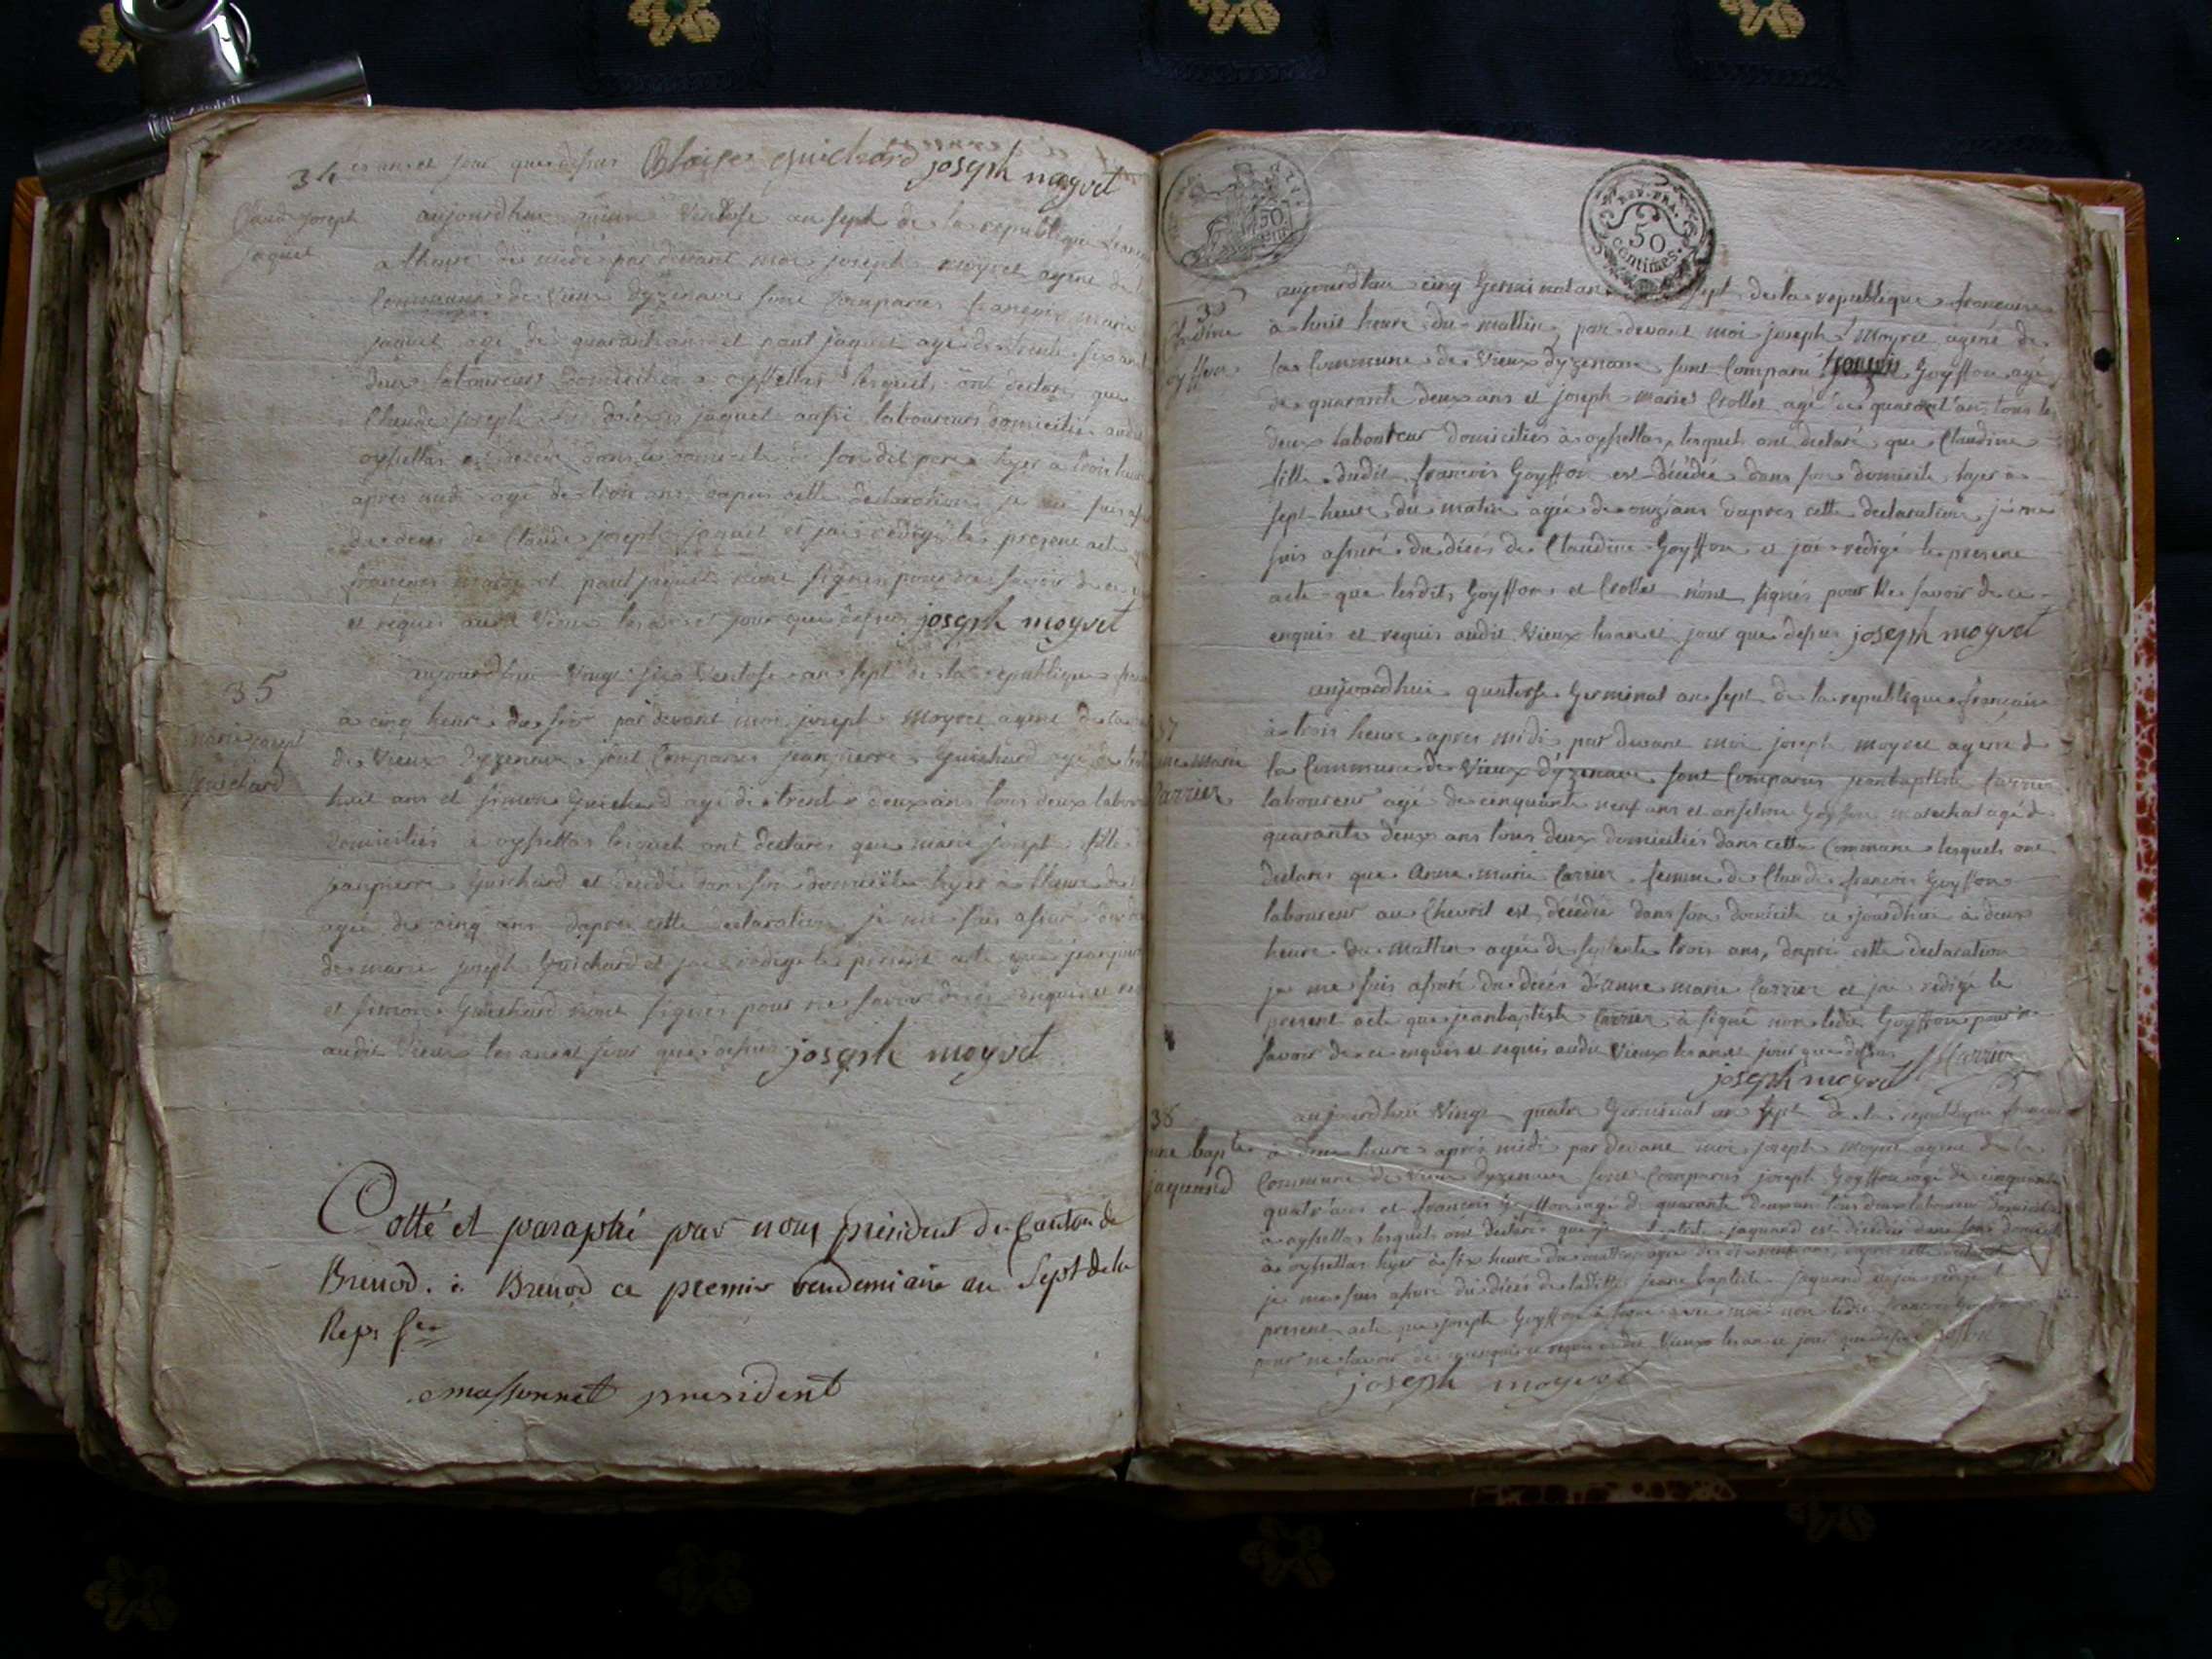 34 es an et jour que dessus Blaise guichard joseph moyret
Claude joseph
jaquet
aujourdhui ventose an sept de la republique
a lheure de midi par devant moi joseph moyret agent de
Commune de Vieux dyzenave sont Comparus françois marie
jaquet agé de quarante ans et paul jaquet agé de trente six ans
deux laboureurs domiciliés a oysellas lesquels ont declaré que
Claude joseph jaquet aussi laboureur domicilié audit
oysellas est décédé dans le domicile de son dit pere hyer à trois heure
après midi agé de trois ans, dapres cette declaration je me suis assuré
du deces de Claude joseph jaquet et jai redigé le present acte
françois marie et paul jaquet n'ont signés pour ne savoir de ce
et requis audit Vieux les an et jour que dessus joseph moyret
35
marie joseph
guichard
aujourdhui Vingt six Ventose an sept de la republique
à cinq heure du soir par devant moi joseph moyret agent de la
de Vieux dyzenave sont Comparus jean pierre Guichard agé de
huit ans et simon Guichard agé de trente deux ans tous deux
domiciliés a oysellas lesquels ont declarés que marie joseph fille
jean pierre Guichard et decedé dans son domicile hyer à lheure de
agée de cinq ans dapres cette declaration je me suis assuré
de marie joseph Guichard et jai redigé le present acte que
et simon Guichard n'ont signés pour ne savoir de ce enquis et
audit Vieux les an et jour que dessus joseph moyret
Cotté et paraphé par nous président du Canton de
Brenod. à Brenod ce premier vendemiaire an Sept de la
Rep
massonnet president
REP. FRA.
50
centimes.
Claudine
goyffon
aujourdhui cinq Germinal an sept de la republique francaise
à huit heure du mattin, par devant moi joseph Moyret agent de
la Commune de Vieux dyzenave sont Comparu francois Goyffon agé
de quarante deux ans et joseph marie Crollet agé de quarant'ans tous les
deux laboureur domicilies à oysellas, lesquels ont declaré que Claudine
fille dudit francois Goyffon est décédée dans son domicile hyer à
sept heure du matin agée de onz'ans dapres cette declaration, je me
suis assuré du décés de Claudine Goyffon et jai redigé le present
acte que lesdits Goyffon et Crollet n'ont signés pour ne savoir de ce
enquis et requis audit Vieux les an et jour que dessus joseph moyret
37
anne marie
Carrier
aujourdhui quatorse Germinal an sept de la republique francaise
à trois heure apres midi par devant moi joseph moyret agent de
la Commune de Vieux d'yzenave sont Comparus jean baptiste Carrier
laboureur agé de cinquante neuf ans et anselme Goyffon marechal agé de
quarante deux ans tous deux domiciliés dans cette Commune lesquels ont
declarés que Anne marie Carrier femme de Claude francois Goyffon
laboureur au Chevril est décédée dans son domicile ce jourdhui à deux
heure du mattin agée de septente trois ans, dapre cette declaration
je me suis assuré du décés d'anne marie Carrier et jai redigé le
present acte que jean baptiste Carrier à signé non ledit Goyffon pour ne
savoir de ce enquis et requis audit Vieux les an et jour que dessus Carrier
joseph moyret
38
jeane bapte
jaquand
aujourdhui Vingt quatre Germinal an sept de la republique francaise
à deux heure après midi par devant moi joseph moyret agent de la
Commune de Vieux dyzenave sont Comparus joseph Goyffon agé de cinquante
quatr'ans et francois Goyffon agé de quarante deux ans tous deux laboureur domiciliés
a oysellas lesquels ont declaré que jeane baptiste jaquand est décédée dans son domicile
à oysellas hyer à six heure du mattin agée de dix neuf ans, dapres cette declaration
je me suis assuré du décés de ladite jeane baptiste jaquand et jai redigé le
present acte que joseph Goyffon à signé avec moi non ledit francois Goyffon
pour ne savoir de ce enquis et requis audit Vieux les an et jour que dessus
joseph moyret